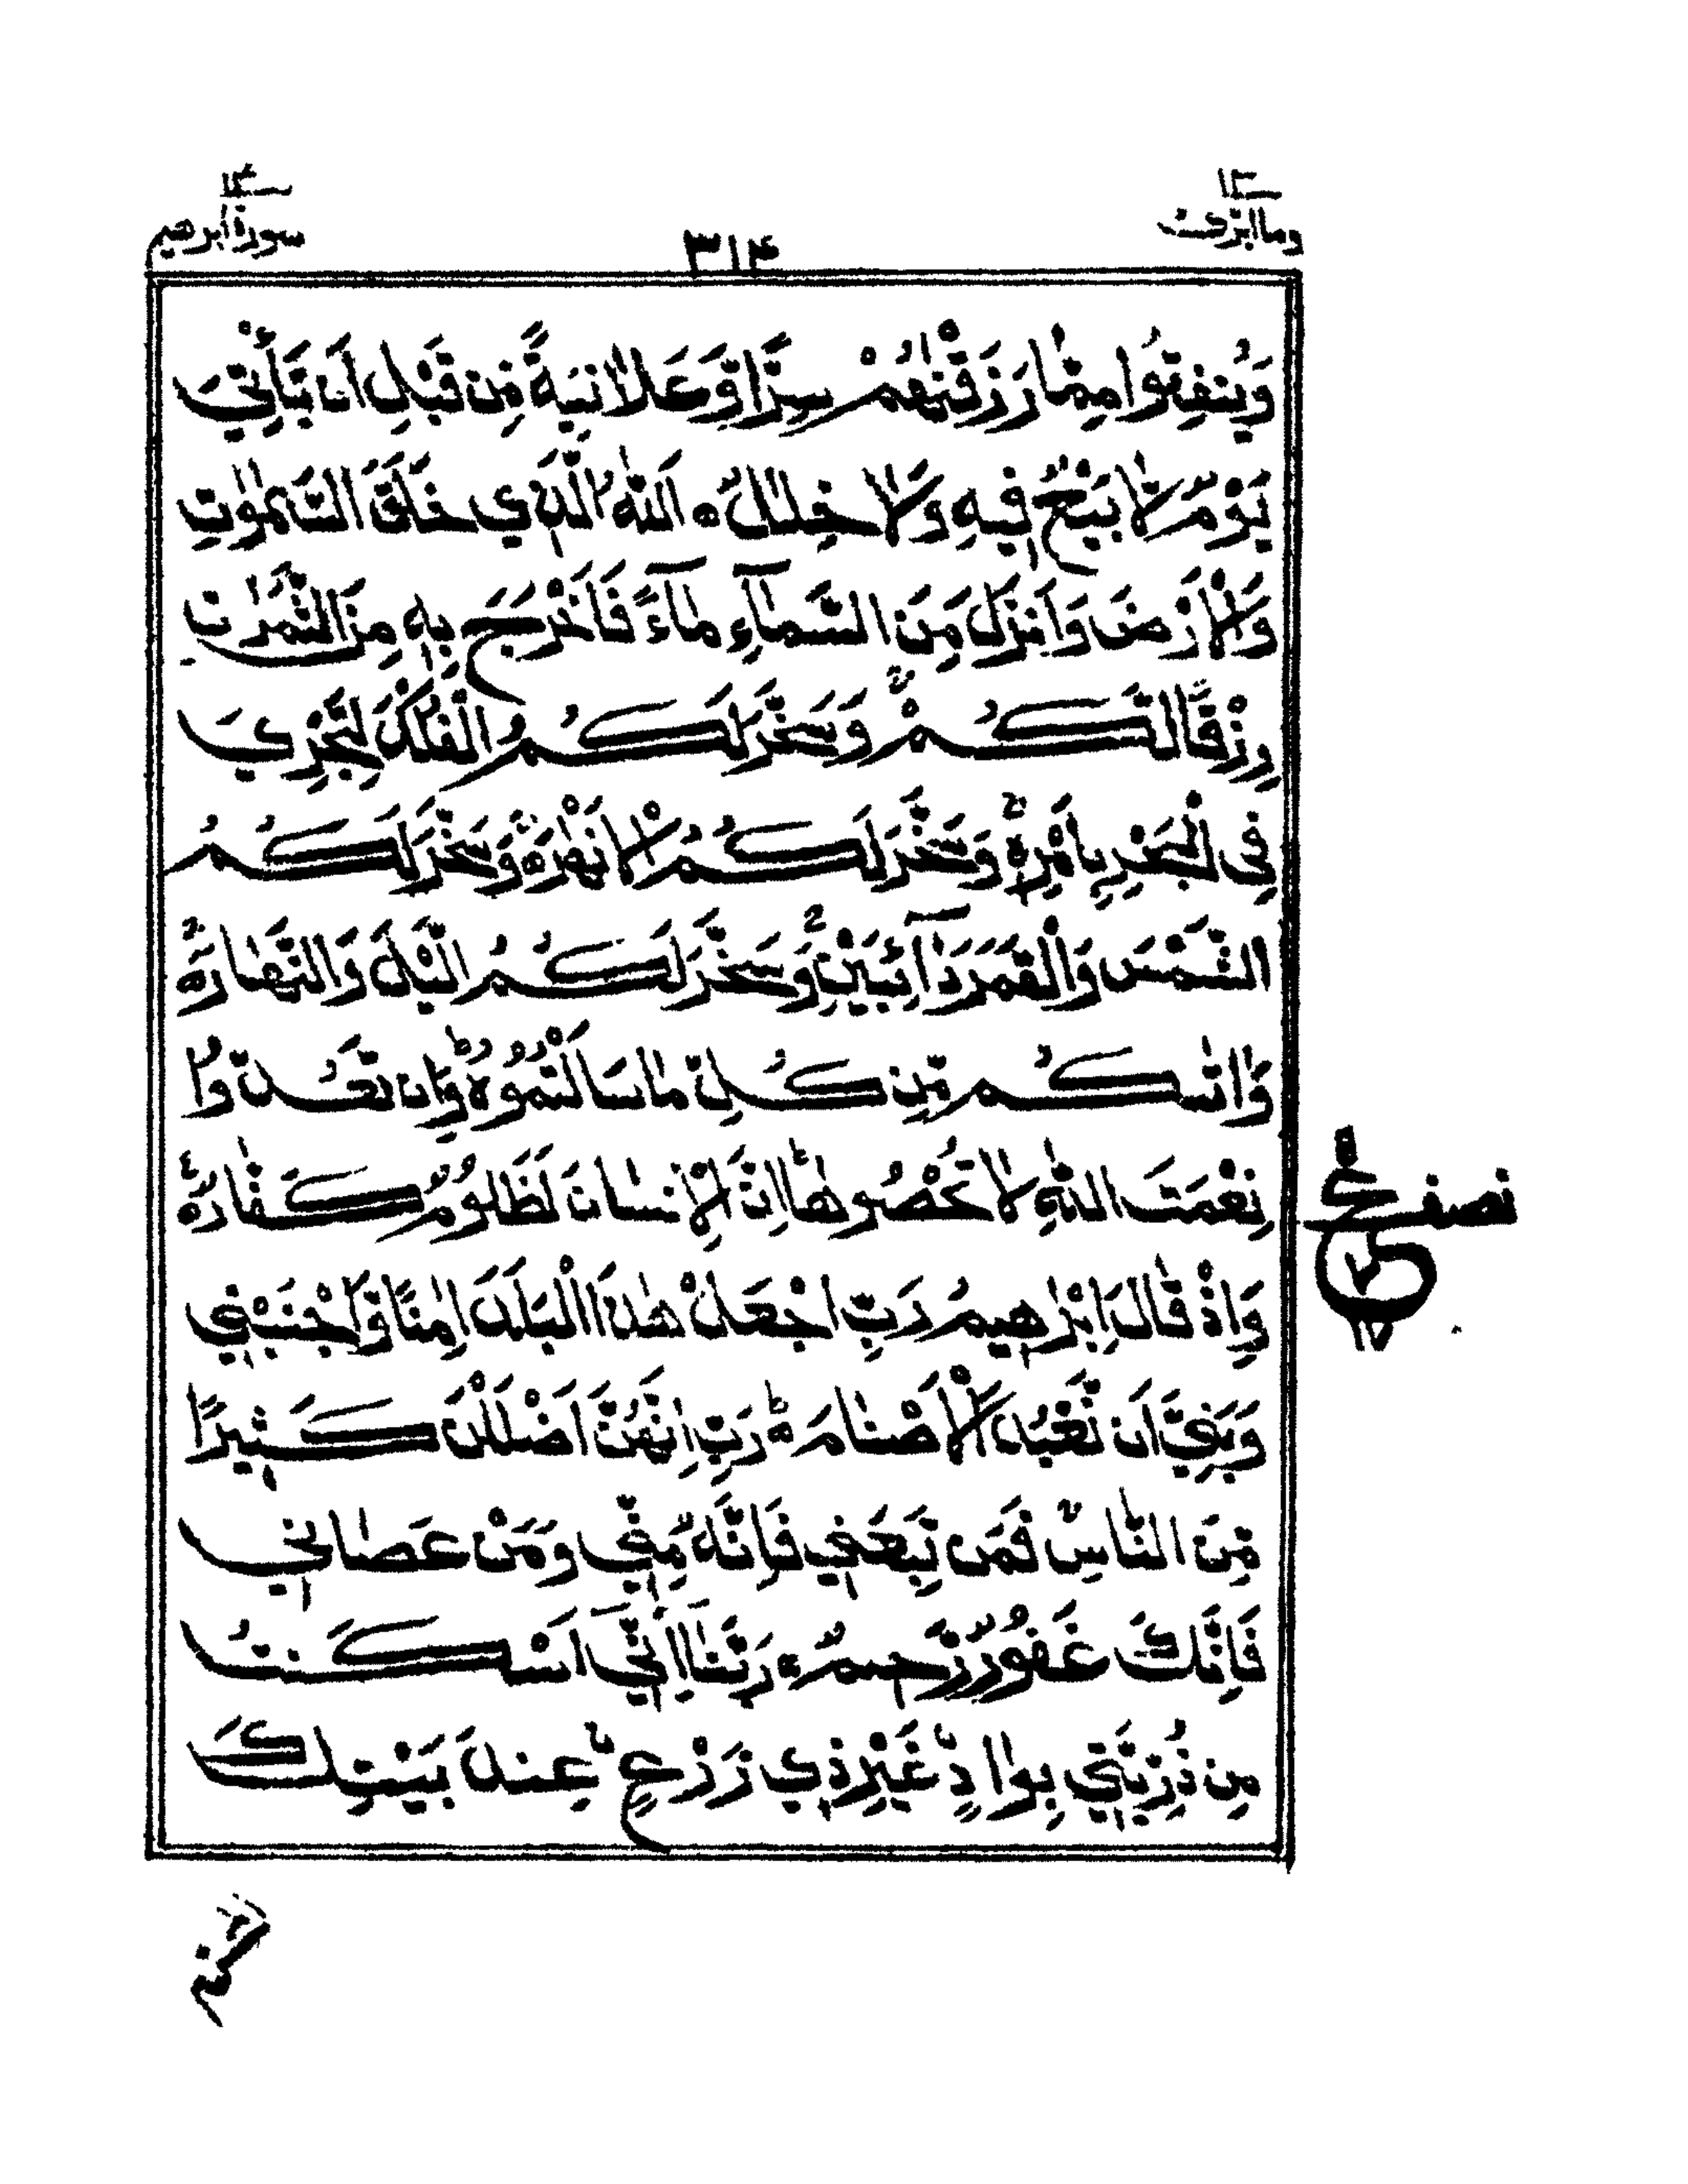 وما ابرئ ١٣
٣١۴
سورة ابرهيم ١۴
وَيُنفِقُوا مِمَّا رَزَقْنٰهُمْ سِرًّا وَّعَلَانِيَةً مِّن قَبْلِ اَن يَّأْتِيَ
يَوْمٌ لَّا بَيْعٌ فِيهِ وَلَا خِلٰلٌ ۝ اَللّٰهُ الَّذِي خَلَقَ السَّمٰوٰتِ
وَالْاَرْضَ وَاَنزَلَ مِنَ السَّمَآءِ مَآءً فَاَخْرَجَ بِهٖ مِنَ الثَّمَرٰتِ
رِزْقًا لَّكُمْ ۚ وَسَخَّرَ لَكُمُ الْفُلْكَ لِتَجْرِيَ
فِي الْبَحْرِ بِاَمْرِهٖ ۚ وَسَخَّرَ لَكُمُ الْاَنْهٰرَ ۝ وَسَخَّرَ لَكُمُ
الشَّمْسَ وَالْقَمَرَ دَآئِبَيْنِ ۚ وَسَخَّرَ لَكُمُ الَّيْلَ وَالنَّهَارَ ۝
وَاٰتٰىكُم مِّن كُلِّ مَا سَاَلْتُمُوهُ ؕ وَاِن تَعُدُّوا
نِعْمَتَ اللّٰهِ لَا تُحْصُوهَا ؕ اِنَّ الْاِنسَانَ لَظَلُومٌ كَفَّارٌ ۝
وَاِذْ قَالَ اِبْرٰهِيمُ رَبِّ اجْعَلْ هٰذَا الْبَلَدَ اٰمِنًا وَّاجْنُبْنِي
وَبَنِيَّ اَن نَّعْبُدَ الْاَصْنَامَ ۝ؕ رَبِّ اِنَّهُنَّ اَضْلَلْنَ كَثِيرًا
مِّنَ النَّاسِ ۚ فَمَن تَبِعَنِي فَاِنَّهٗ مِنِّي ۚ وَمَنْ عَصَانِي
فَاِنَّكَ غَفُورٌ رَّحِيمٌ ۝ رَبَّنَا اِنِّي اَسْكَنتُ
مِن ذُرِّيَّتِي بِوَادٍ غَيْرِ ذِي زَرْعٍ عِندَ بَيْتِكَ
نصف ع